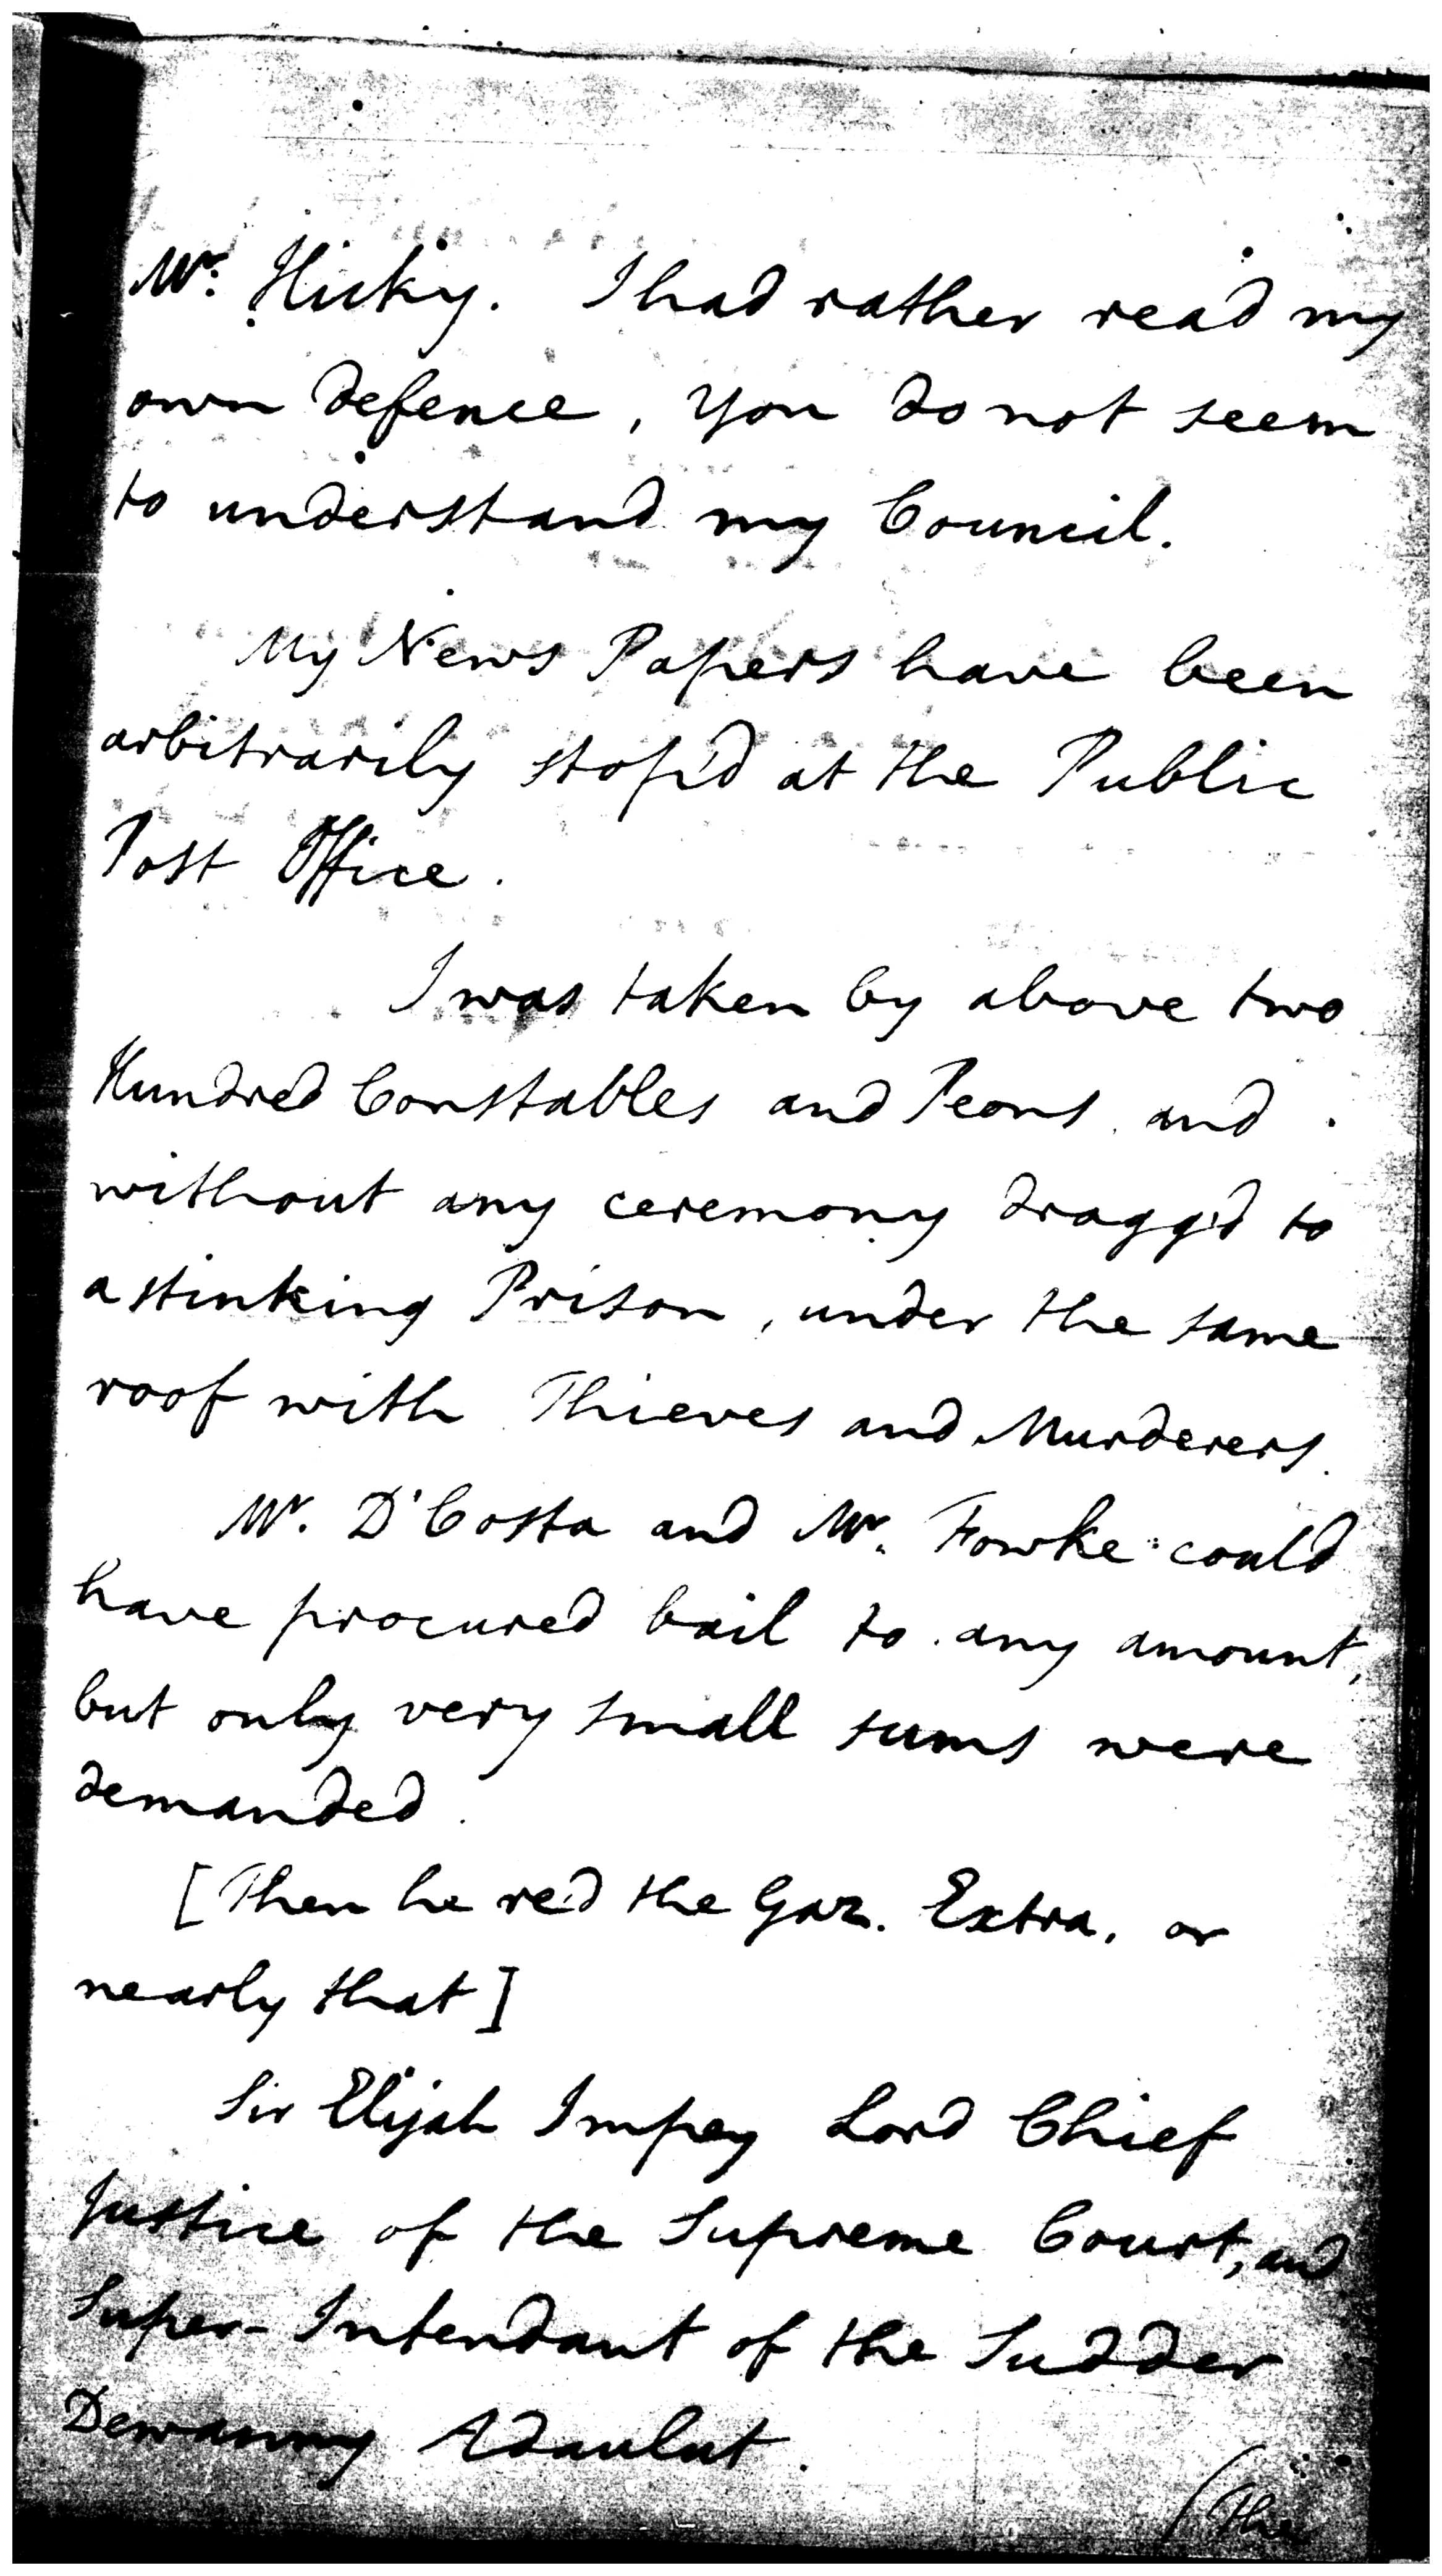 Mr. Hicky. I had rather read my
own defence, you do not seem
to understand my Council.
My News Papers have been
arbitrarily stop'd at the Public
Post Office.
I was taken by above two
Hundred Constables and Peons and
without any ceremony dragg'd to
a stinking Prison, under the same
roof with Thieves and Murderers.
Mr. D'Costa and Mr. Fowke could
have procured bail to any amount,
but only very small sums were
demanded.
[Then he red the Gaz. Extra. or
nearly that]
Sir Elijah Impey Lord Chief
Justice of the Supreme Court, and
Super-Intendant of the Sudder
Dewanny Adaulut.
(the